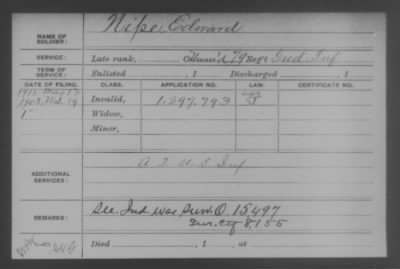 NAME OF SOLDIER: Nipe, Edward
SERVICE: Late rank, 79 Regt Ind Inf
TERM OF SERVICE: Enlisted , 1 Discharged , 1
DATE OF FILING. CLASS. APPLICATION NO. LAW. CERTIFICATE NO.
Invalid, 1,297,793
Widow,
Minor,
ADDITIONAL SERVICES: A 2 U S Inf
REMARKS: See. Ind was Surv. O. 15497
Sur. Ctf 8,155
Died , 1 , at